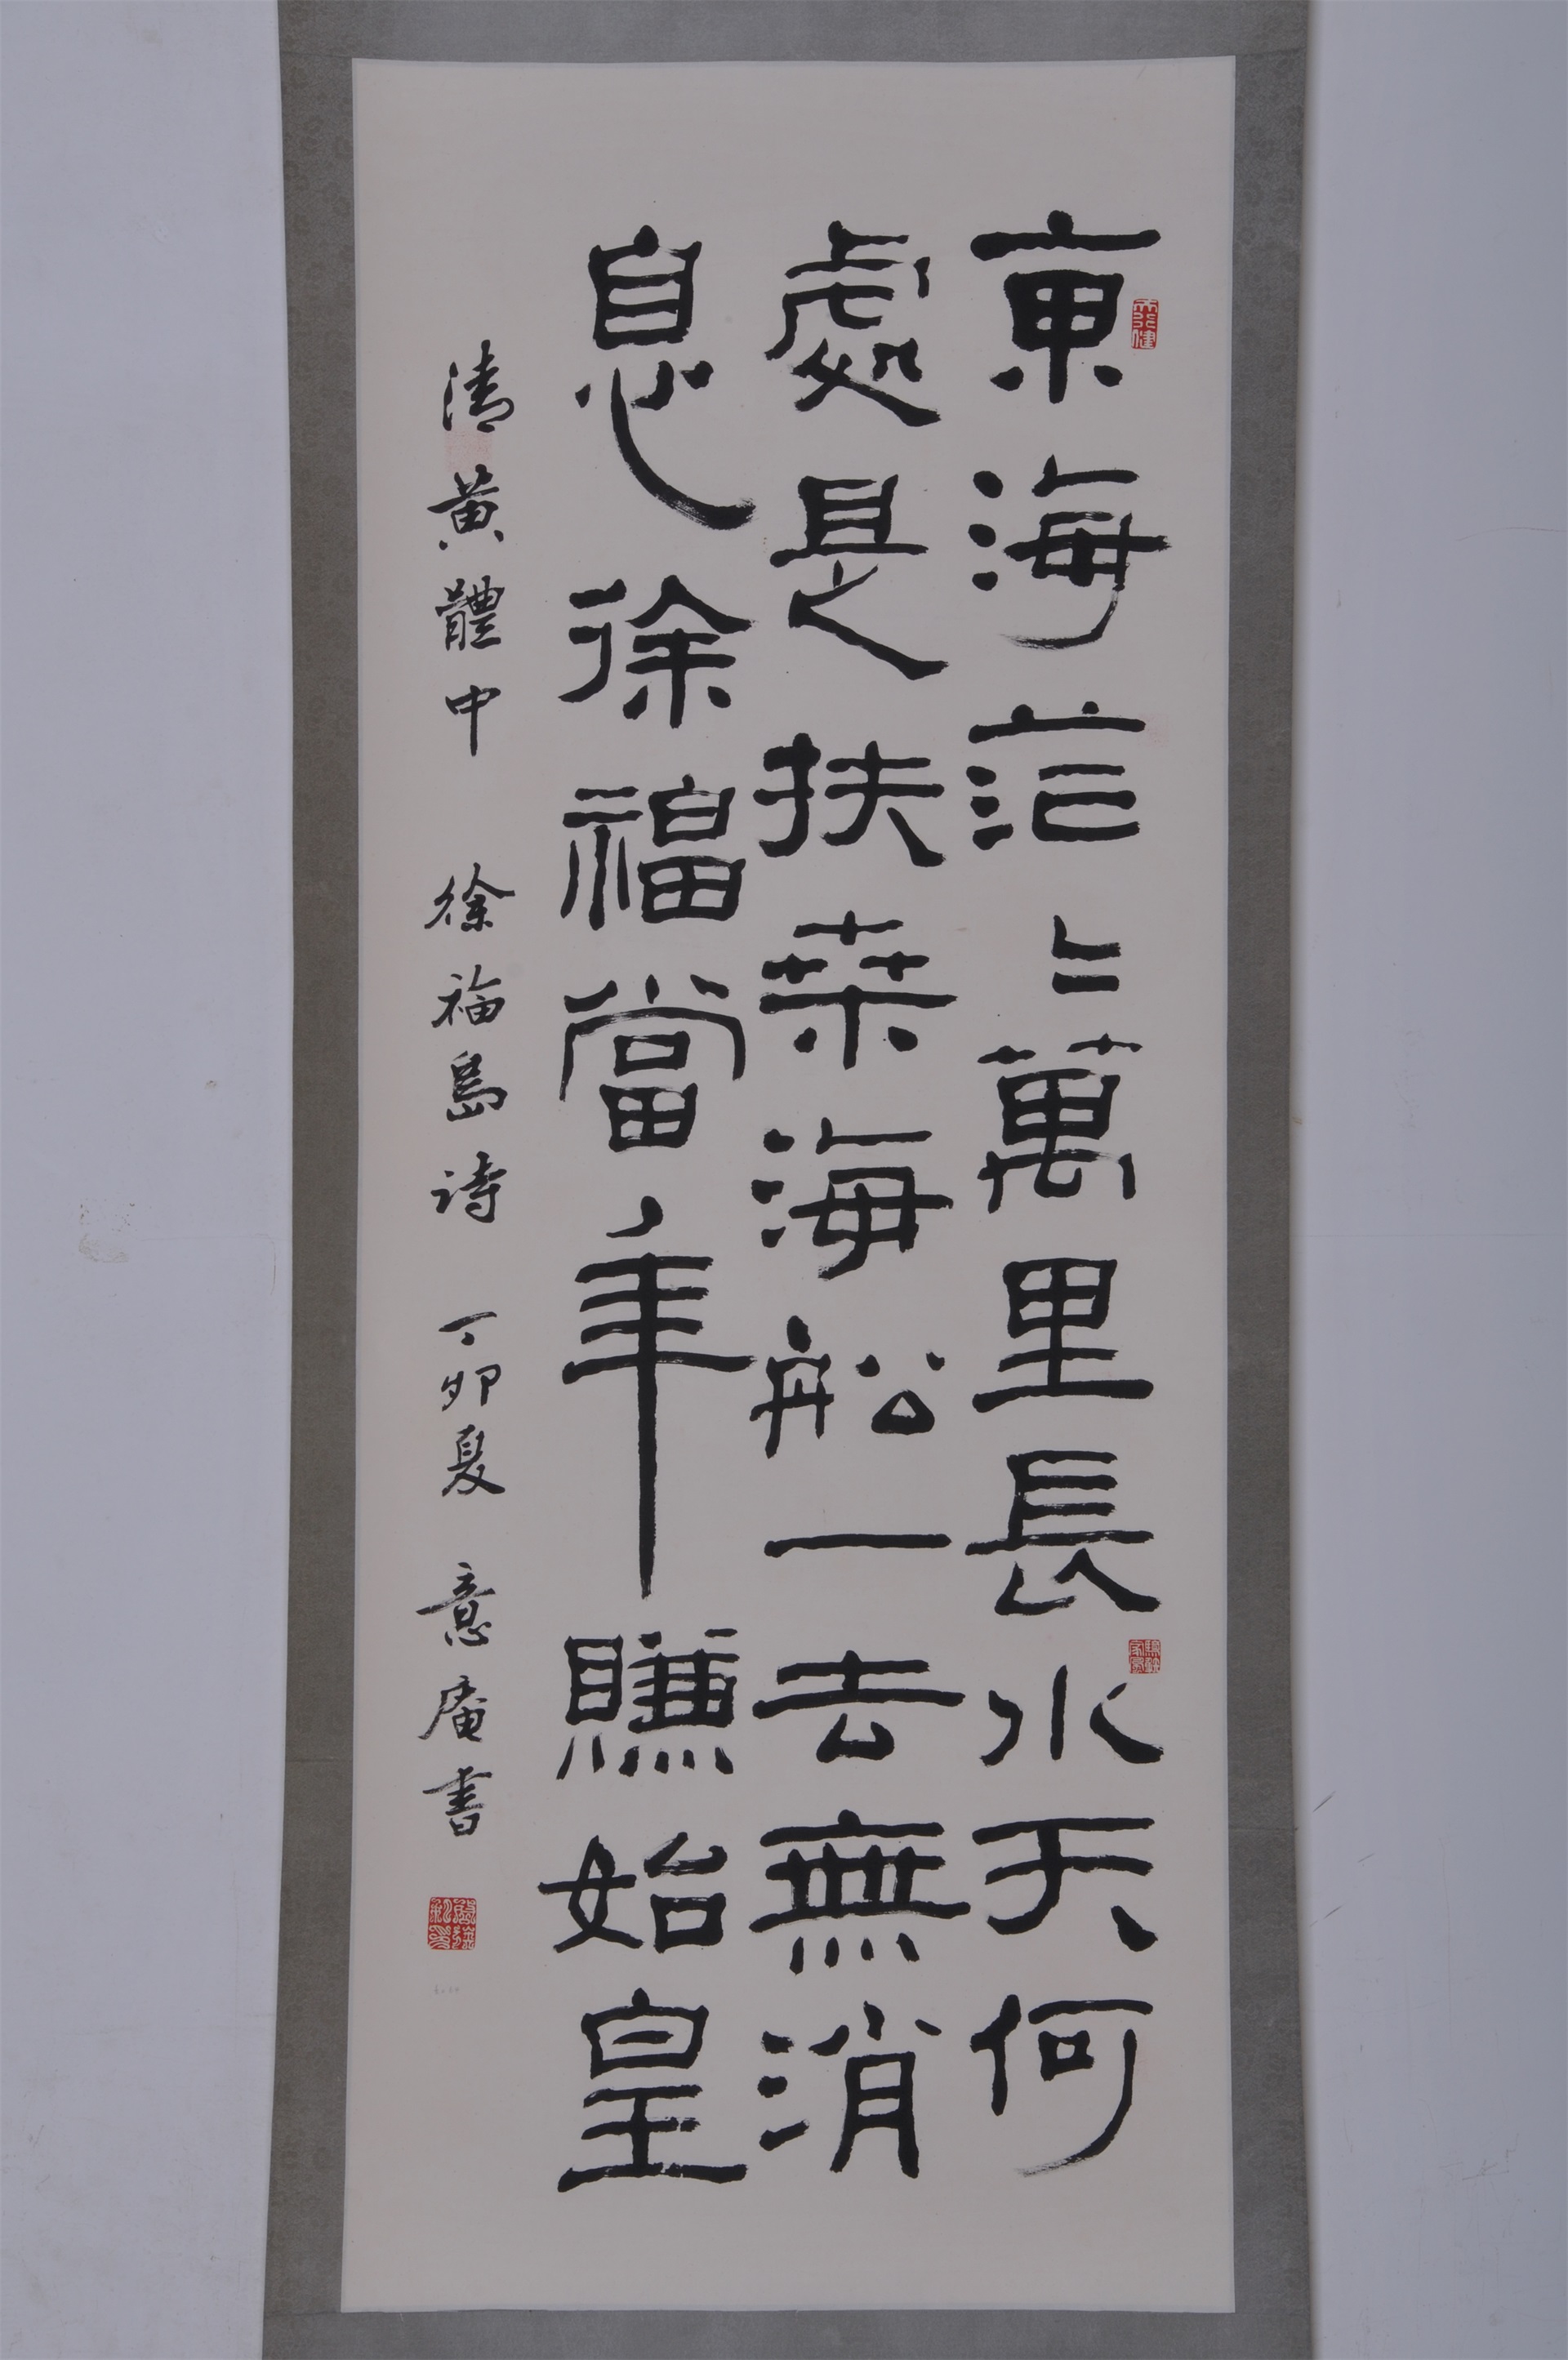 東海茫々萬里長水天何
處是扶桒海船一去無消
息徐福當年賺始皇
清黃體中 徐福島詩 丁卯夏 意庵書